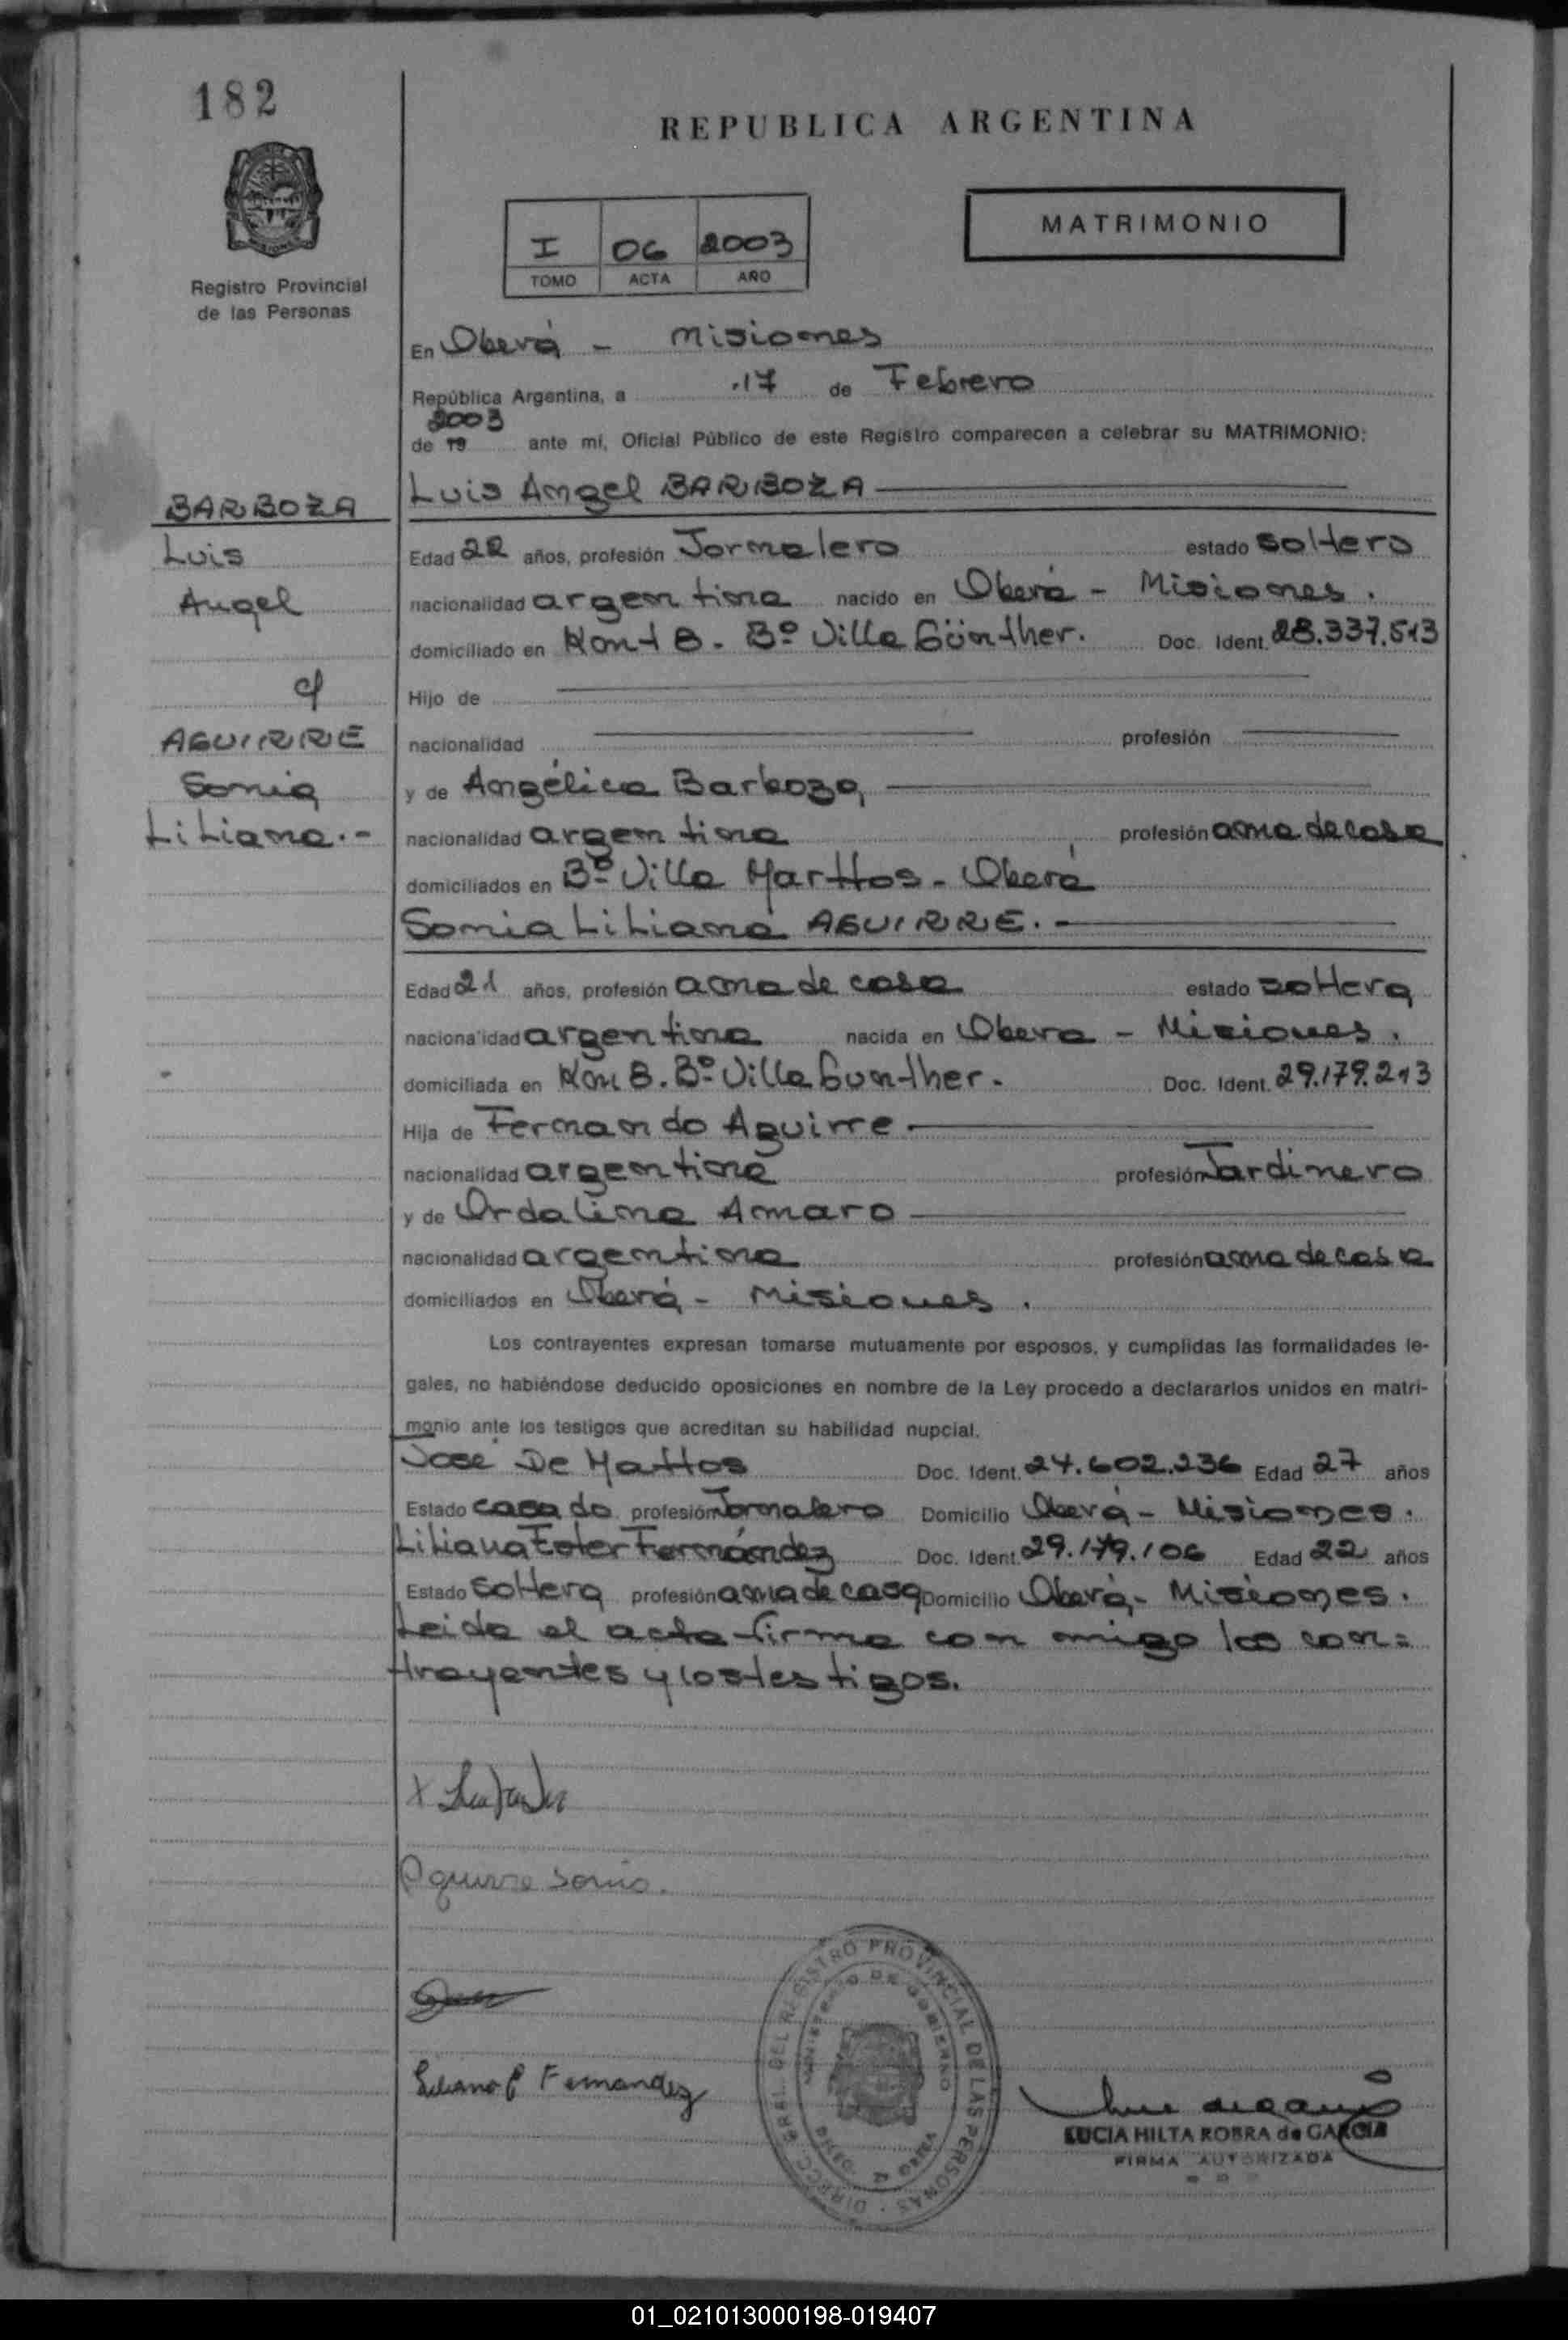 182
REPUBLICA ARGENTINA
MATRIMONIO
I 06 2003
TOMO ACTA AÑO
Registro Provincial
de las Personas
En Oberá - Misiones
República Argentina, a 17 de Febrero
2003
de 19 ante mí, Oficial Público de este Registro comparecen a celebrar su MATRIMONIO:
Luis Angel BARBOZA
BARBOZA
Luis
Angel
c/
AGUIRRE
Sonia
Liliana.-
Edad 22 años, profesión Jornalero estado soltero
nacionalidad argentina nacido en Oberá - Misiones.
domiciliado en Km 8. Bº Villa Günther. Doc. Ident. 28.337.513
Hijo de
nacionalidad profesión
y de Angélica Barboza,
nacionalidad argentina profesión ama de casa
domiciliados en Bº Villa Marttos - Oberá
Sonia Liliana AGUIRRE.-
Edad 21 años, profesión ama de casa estado soltera
nacionalidad argentina nacida en Obera - Misiones.
domiciliada en Km 8. Bº Villa Gunther. Doc. Ident. 29.179.213
Hija de Fernando Aguirre.
nacionalidad argentina profesión Jardinero
y de Ordalina Amaro
nacionalidad argentina profesión ama de casa
domiciliados en Oberá - Misiones.
Los contrayentes expresan tomarse mutuamente por esposos, y cumplidas las formalidades le-
gales, no habiéndose deducido oposiciones en nombre de la Ley procedo a declararlos unidos en matri-
monio ante los testigos que acreditan su habilidad nupcial.
José De Mattos Doc. Ident. 24.602.236 Edad 27 años
Estado casado profesión Jornalero Domicilio Oberá - Misiones.
Liliana Ester Fernández Doc. Ident. 29.179.106 Edad 22 años
Estado soltera profesión ama de casa Domicilio Oberá - Misiones.
Leida el acta firma con migo los con=
trayentes y los testigos.
Aguirre Sonia.
Liliana E Fernandez
DIRECC. GRAL. DEL REGISTRO PROVINCIAL DE LAS PERSONAS
MINISTERIO DE GOBIERNO
LUCIA HILTA ROBRA de GARCIA
FIRMA AUTORIZADA
01_021013000198-019407